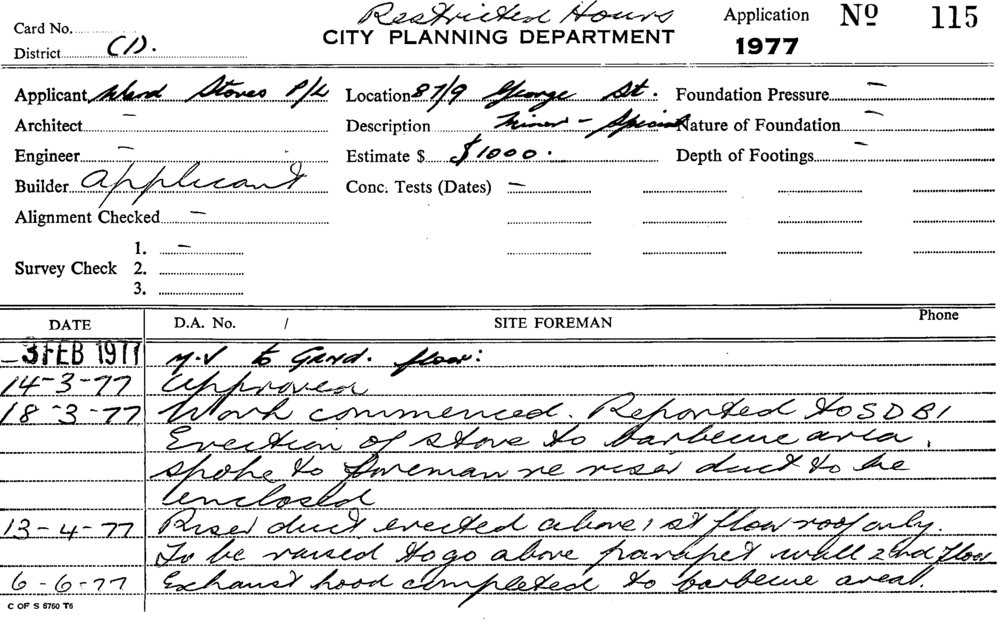 Restricted Hours
Card No. CITY PLANNING DEPARTMENT Application Nº 115
District C1). 1977
Applicant Stoves P/L Location 87/9 George St. Foundation Pressure –
Architect – Description Minor – Special Nature of Foundation –
Engineer – Estimate $ $1000. Depth of Footings –
Builder applicant Conc. Tests (Dates) –
Alignment Checked –
1. –
Survey Check 2.
3.
DATE D.A. No. / SITE FOREMAN Phone
–3 FEB 1977 M.V to Grnd. floor:
14-3-77 approved
18-3-77 Work commenced. Reported to SDBI
Erection of stove to barbecue area.
spoke to foreman re riser duct to be
enclosed
13-4-77 Riser duct erected above 1st floor roof only.
To be raised to go above parapet wall 2nd floor
6-6-77 Exhaust hood completed to barbecue area.
C OF S 6760 T6